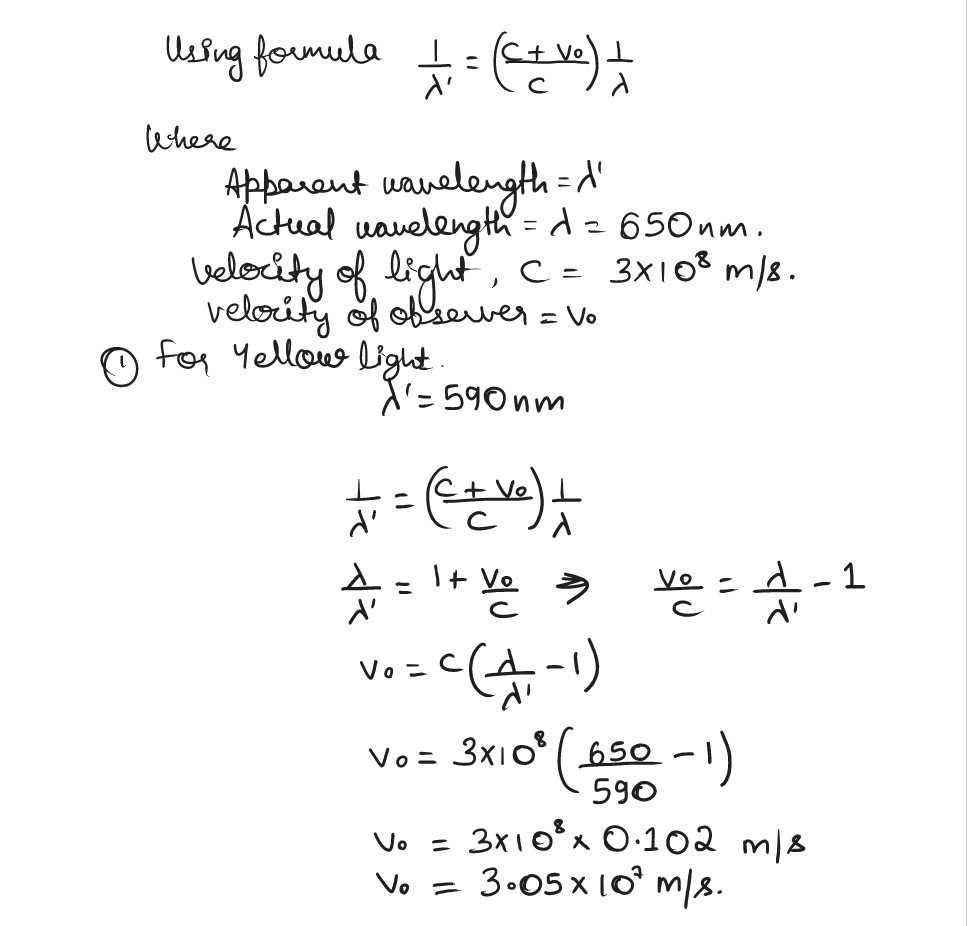 Using formula 1/λ' = (C + Vo / C) 1/λ
Where
Apparent wavelength = λ'
Actual wavelength = λ = 650 nm.
Velocity of light, C = 3×10⁸ m/s.
velocity of observer = Vo
① For Yellow light.
λ' = 590 nm
1/λ' = (C + Vo / C) 1/λ
λ/λ' = 1 + Vo/C ⇒ Vo/C = λ/λ' - 1
Vo = C(λ/λ' - 1)
Vo = 3×10⁸ (650/590 - 1)
Vo = 3×10⁸ × 0.102 m/s
Vo = 3.05 × 10⁷ m/s.